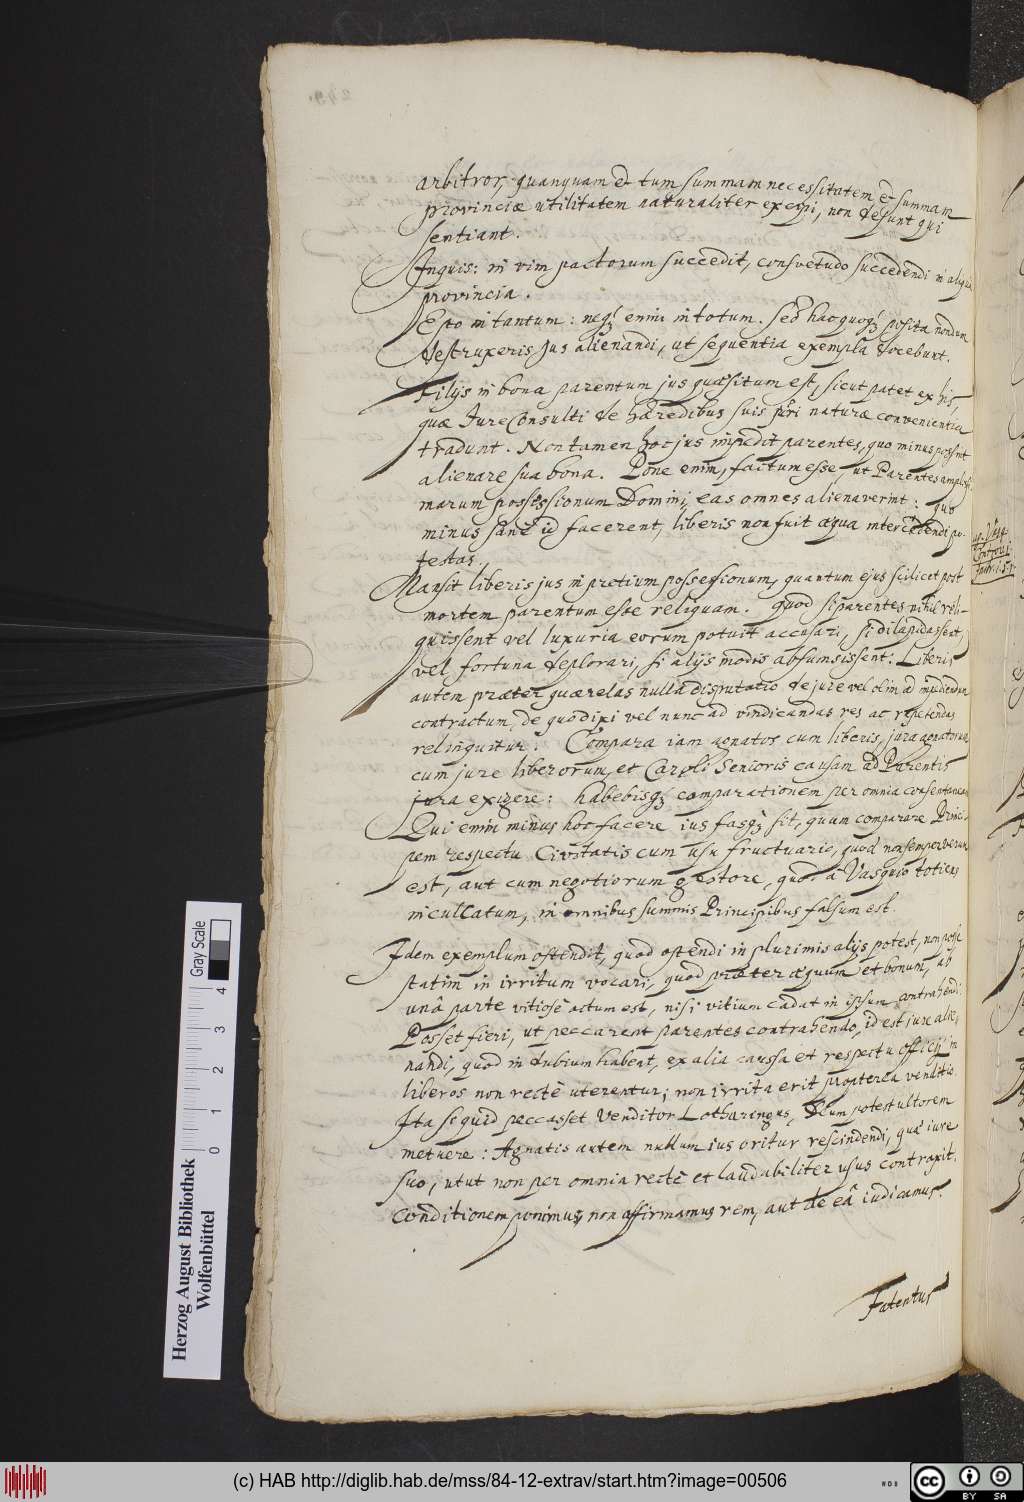 arbitror, quanquam & tum summam necessitatem & summam
provinciæ utilitatem naturaliter excipi, non desunt qui
sentiant.
Inquis: in vim pactorum succedit, consvetudo succedendi in aliqua
provincia.
Esto in tantum: neq; enim in totum. Sed hac quoq; posita nondum
destruxeris jus alienandi, ut sequentia exempla docebunt.
Filijs in bona parentum jus quæsitum est, sicut patet ex his,
quæ JureConsulti de hæredibus suis juri naturæ convenientia
tradunt. Non tamen hoc jus impedit parentes, quo minus possint
alienare sua bona. Pone enim, factum esse, ut Parentes amplis-
marum possessionum Domini, eas omnes alienaverint: quo
minus sanè id facerent, liberis non fuit æqua intercedendi po-
testas.
Mansit liberis jus in pretium possessionum, quantum ejus scilicet post
mortem parentum esse reliquam. quod si parentes nihil reli-
quissent vel luxuria eorum potuit accusari, si dilapidassent,
vel fortuna deplorari, si alijs modis absumsissent: Liberis
autem præter quærelas nulla disputatio de jure vel olim ad impediendum
contractum, de quo dixi vel nunc ad vindicandas res ac repetendas
relinquitur. Compara iam agnatos cum liberis, jura agnatorum
cum jure liberorum, et Caroli Senioris causam ad Parentis
jura exigere: habebisq; comparationem per omnia consentaneam
Qui enim minus hoc facere ius fasq; sit, quum comparare Princi-
pem respectu Civitatis cum usufructuario, quod non semper verum
est, aut cum negotiorum gestore, quod a Vasquio toties
inculcatum, in omnibus summis Principibus falsum est.
Idem exemplum ostendit, quod ostendi in plurimis alijs potest, non posse
statim in irritum vocari, quod præter æquum et bonum, ab
unâ parte vitiosè actum est, nisi vitium cadat in ipsum contrahendi.
Posset fieri, ut peccarent parentes contrahendo, id est jure alie-
nandi, quod in dubium habeat, ex alia caussa et respectu officij in
liberos non rectè uterentur; non irrita erit propterea venditio.
Ita si quid peccasset Venditor Lotharingus, Deum potest ultorem
metuere: Agnatis autem nullum ius oritur rescindendi, quâ iure
suo, utut non per omnia rectè et laudabiliter usus contraxit.
Conditionem ponimus, non affirmamus rem, aut de eâ iudicamus.
Fatentur
249.
Herzog August Bibliothek
Wolfenbüttel
0 1 2 3 4
Gray Scale
(c) HAB http://diglib.hab.de/mss/84-12-extrav/start.htm?image=00506
cc BY SA